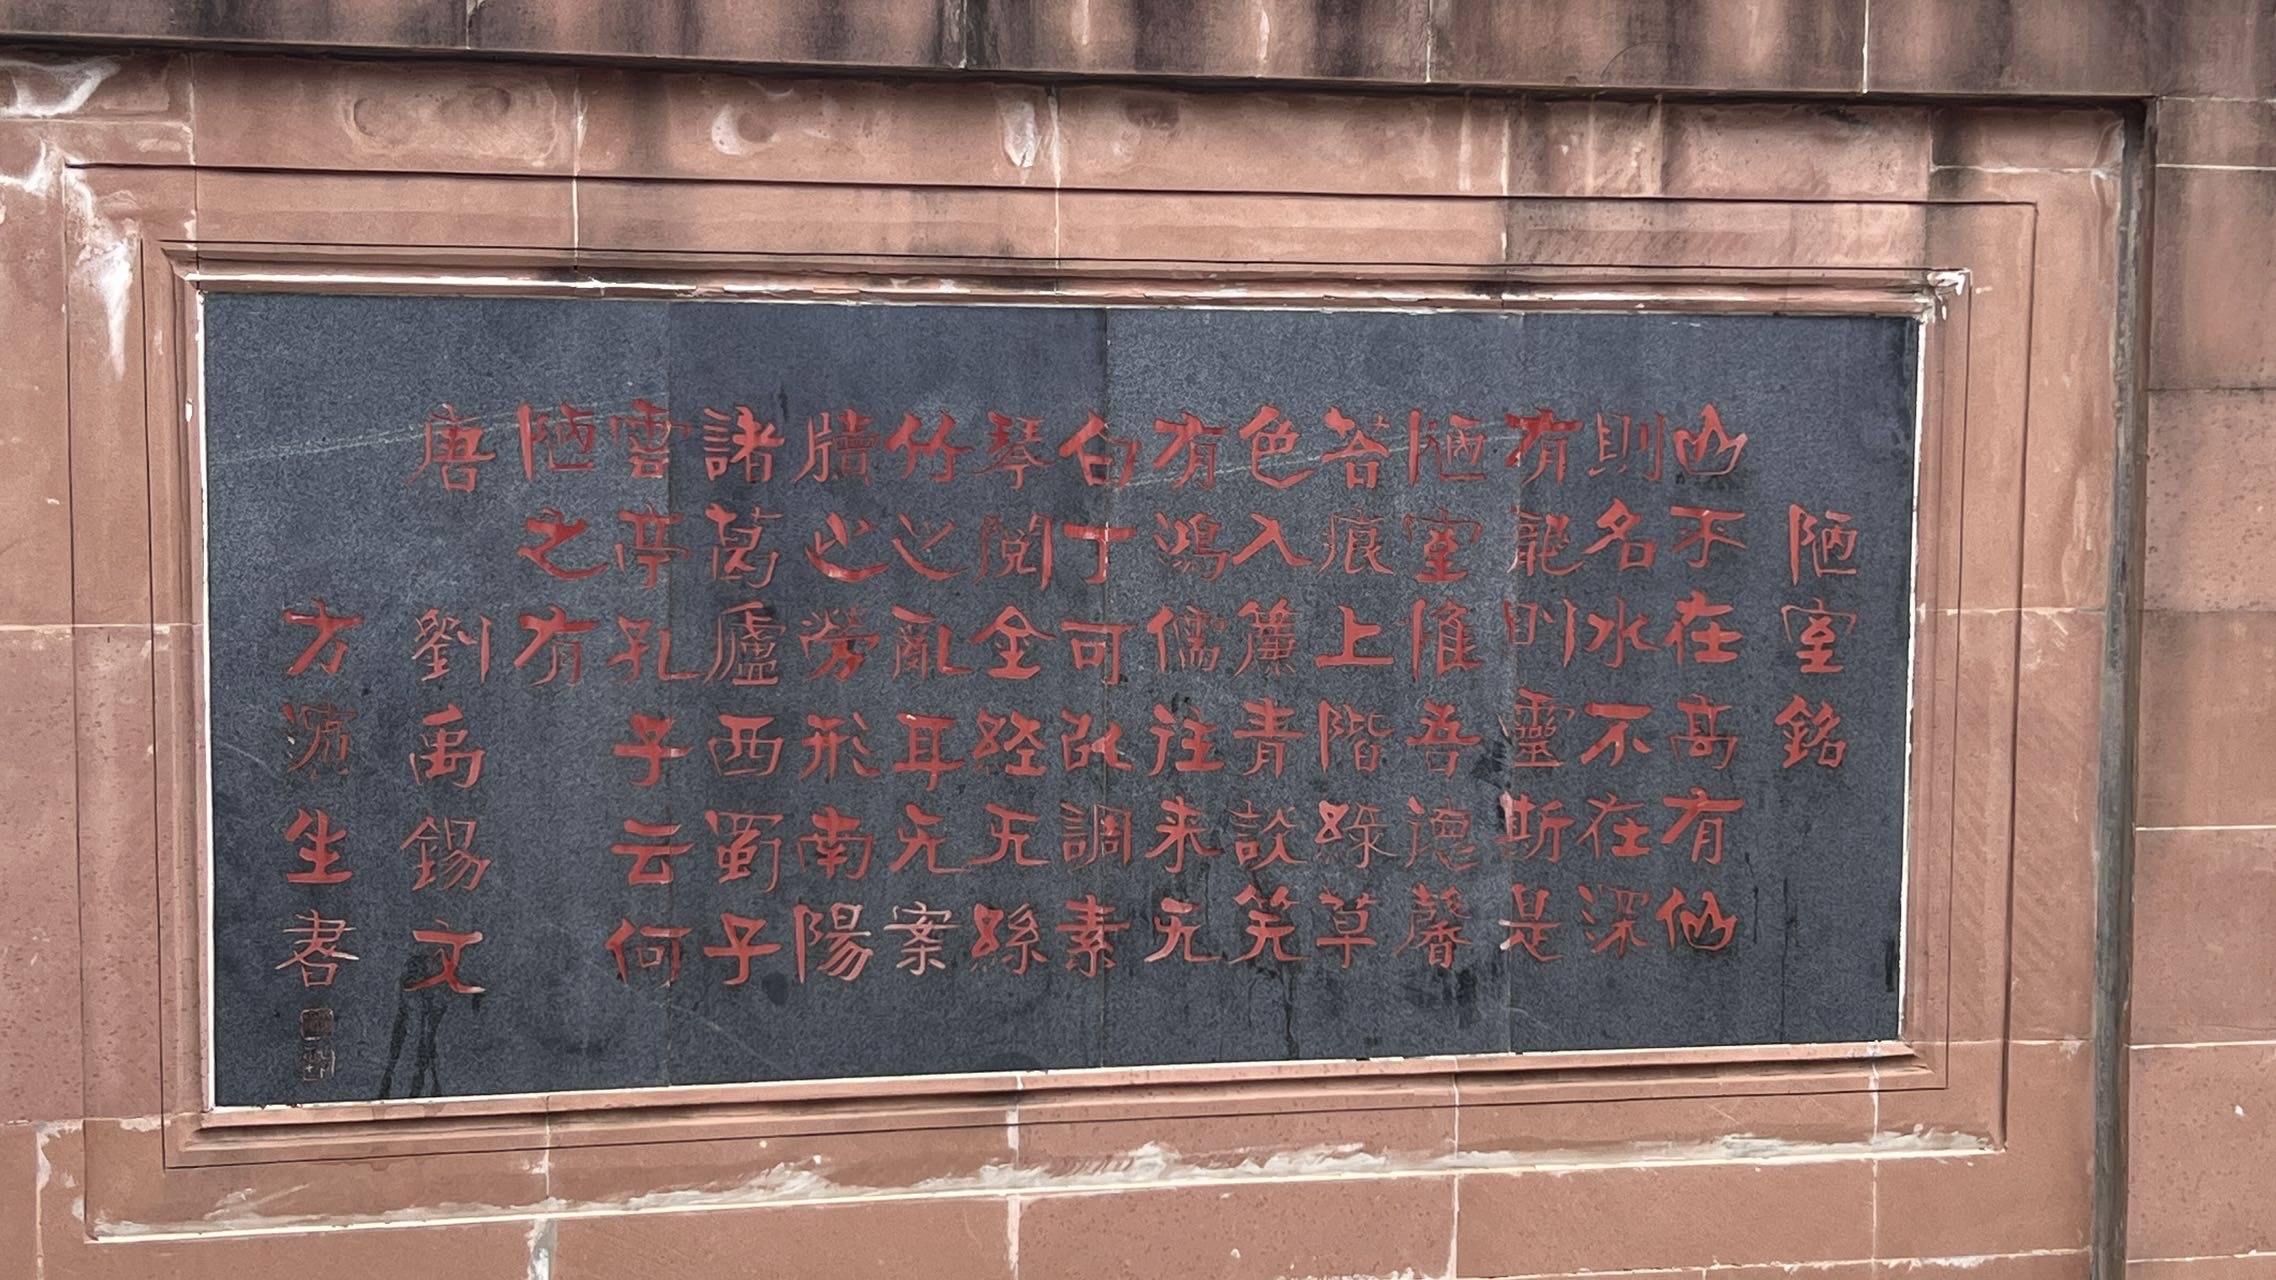 陋室銘
山不在高有仙
則名水不在深
有龍則靈斯是
陋室惟吾德馨
苔痕上階綠草
色入簾青談笑
有鴻儒往来无
白丁可以調素
琴閱金经无絲
竹之亂耳无案
牘之勞形南陽
諸葛廬西蜀子
雲亭孔子云何
陋之有
唐 劉禹錫文
方生書